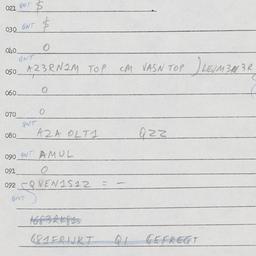 021 GNT $
030 GNT $
040 0
GNT
050 AZ3RN1M TOP CM VASN TOP
060 0
070 0
GNT
080 A2A OLT1 QZZ
090 GNT AMUL
091 0
092 QVEN1S12 = -
GNT
Q1 GEFREGT